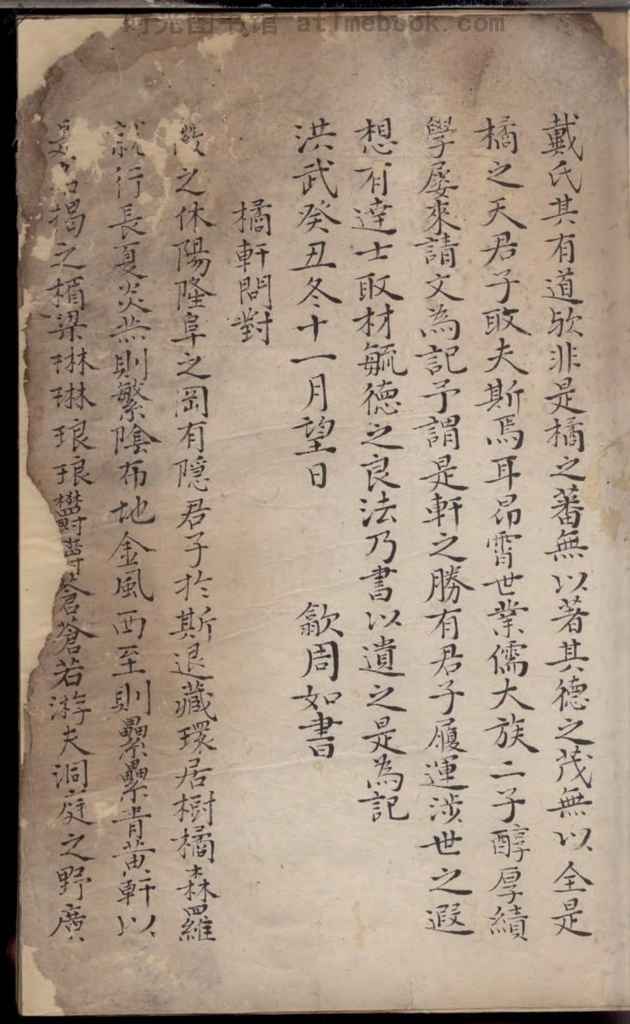 戴氏其有道歟非是橘之蕃無以著其德之茂無以全是
橘之天君子取夫斯焉耳昂霄世業儒大族二子醇厚績
學屢來請文為記予謂是軒之勝有君子履運涉世之遐
想有達士取材毓德之良法乃書以遺之是為記
洪武癸丑冬十一月望日 歙周如書
橘軒問對
之休陽隆阜之岡有隱君子於斯退藏環居樹橘森羅
就行長夏炎燕則繁陰布地金風西至則纍纍青黃軒以
名揭之楣梁琳琳琅琅欝欝蒼蒼若游夫洞庭之野廣
时光图书馆 atimebook.com